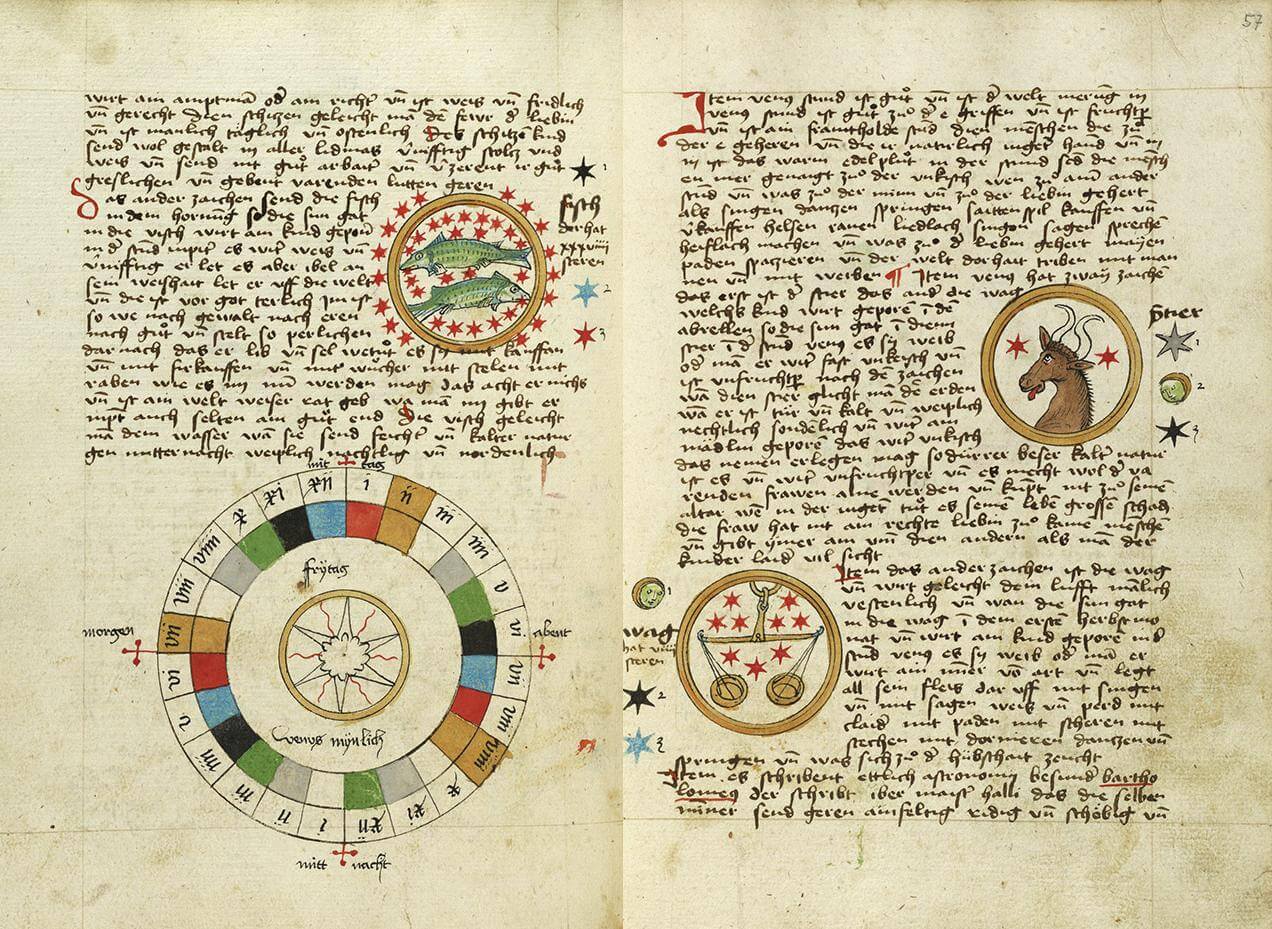 wirt ain amptmā od ain richt vn̄ ist weis vn̄ fridlich
vn̄ gerecht dien schitzen geleicht mā de fewr d liebin
vn̄ ist manlich täglich vn̄ ostenlich Des schitzē kind
send wol gestalt in aller lidmas v̄nifftig stoltz vnd
weis vn̄ send mit gůt arbait vn̄ v̄zerent ir gůt
greslichen vn̄ gebent varenden lutten geren
Das ander zaichen send die fisch
in dem hornūg so die sun gat
in die visch wirt ain kind geporn
in d stūd es wirt weis vn̄
v̄nifftig er let es aber ibel an
sein weishait let er vff die welt
vn̄ die ist vor got terlich im ist
so we nach gewalt nach eren
nach gůt vn̄ stelt so perlichen
dar nach das er lib vn̄ sel es sy mit kauffan
vn̄ mit firkauffen vn̄ mit wůcher mit stelen mit
raben wie es im nū werden mag das acht er nichs
vn̄ ist ain welt weiser rat geb wa mā im gibt er
nīpt auch selten ain gůt end Die visch geleicht
mā dem wasser wā sie send feicht vn̄ kalter natur
gen mitternacht weiplich nachtlig vn̄ nordenlich
fisch
der hat
xxxviiii
steren
1
2
3
mit tag
xii i ii iii iiii v vi
abent
vii viii viiii x xi xii
mitt nacht
i ii iii iiii v vi
morgen
vii viii viiii x xi
frytag
venus mynlich
57
Item venus stund ist gůt vn̄ ist d welt merūg in
venus stund ist gůt zů d e griffen vn̄ ist fruchtp
vn̄ ist ain stūd dien mēschen die zů
der e geheren vn̄ die ir natirlich iuget hand vn̄ in
in ist das warm edel plůt in der stund send die mēsch
en mer genaigt zů der vnkisch wen zů ainr ander
stūd vn̄ was zů der minn vn̄ zů der liebin gehert
als singen dantzen springen saittenspil kauffen vn̄
v̄kauffen helsen liedlach singen sagen spreche
heiflich machen vn̄ was zů d liebin gehert mayen
paden spatzieren vn̄ der welt dorhait triben mit man
nen vn̄ mit weiben ¶ Item venus hat zway zaichē
das erst ist d stier das and die wag
welchs kind wirt geporē ī de
abrellen so die sun gat ī dienn
stier ī d stūd venus es sy weib
od mā er wirt fast vnkisch vn̄
ist vnfruchtp nach dē zaichen
wā dien stier glicht mā dē erden
wā er ist tůr vn̄ kalt vn̄ weiplich
nechtlich sondelich vn̄ wirt ain
mādlin geporē das wirt vnkisch
das niemen erlegen mag so dürrer beser kalt natur
ist es vn̄ wirt vnfruchtper vn̄ es mecht wol d va
renden frawen aine werden vn̄ kūpt nit zů seinē
altar wē in der iuget tůt es seinē lebē grossē schad
die fraw hat nit ain rechte liebin zů kaine mēschē
vn̄ gibt ȳmer ain vm̄ dien andern als mā der
kinder laid vil sicht
stier
1
2
3
Item das ander zaichen ist die wag
vn̄ wirt geleicht dem lufft mālich
vestenlich vn̄ wan die sun gat
in die wag ī dem erste herbstmo
nat vn̄ wirt ain kind geporē in d
stūd venus es sy weib od mā er
wirt ain mīner vō art vn̄ legt
all sein fleis dar vff mit singen
vn̄ mit sagen weis vn̄ perd mit
claid mit paden mit scheren mit
stechen mit dornieren dantzen vn̄
springen vn̄ was sich zů d hübschait zeucht
wag
hat viiii
steren
1
2
3
Item es schribent ettlich astronomy besund bartho
lomeus der schribt iber maist halli das die selben
mīner send geren ainfeltig ridig vn̄ schöbig vn̄